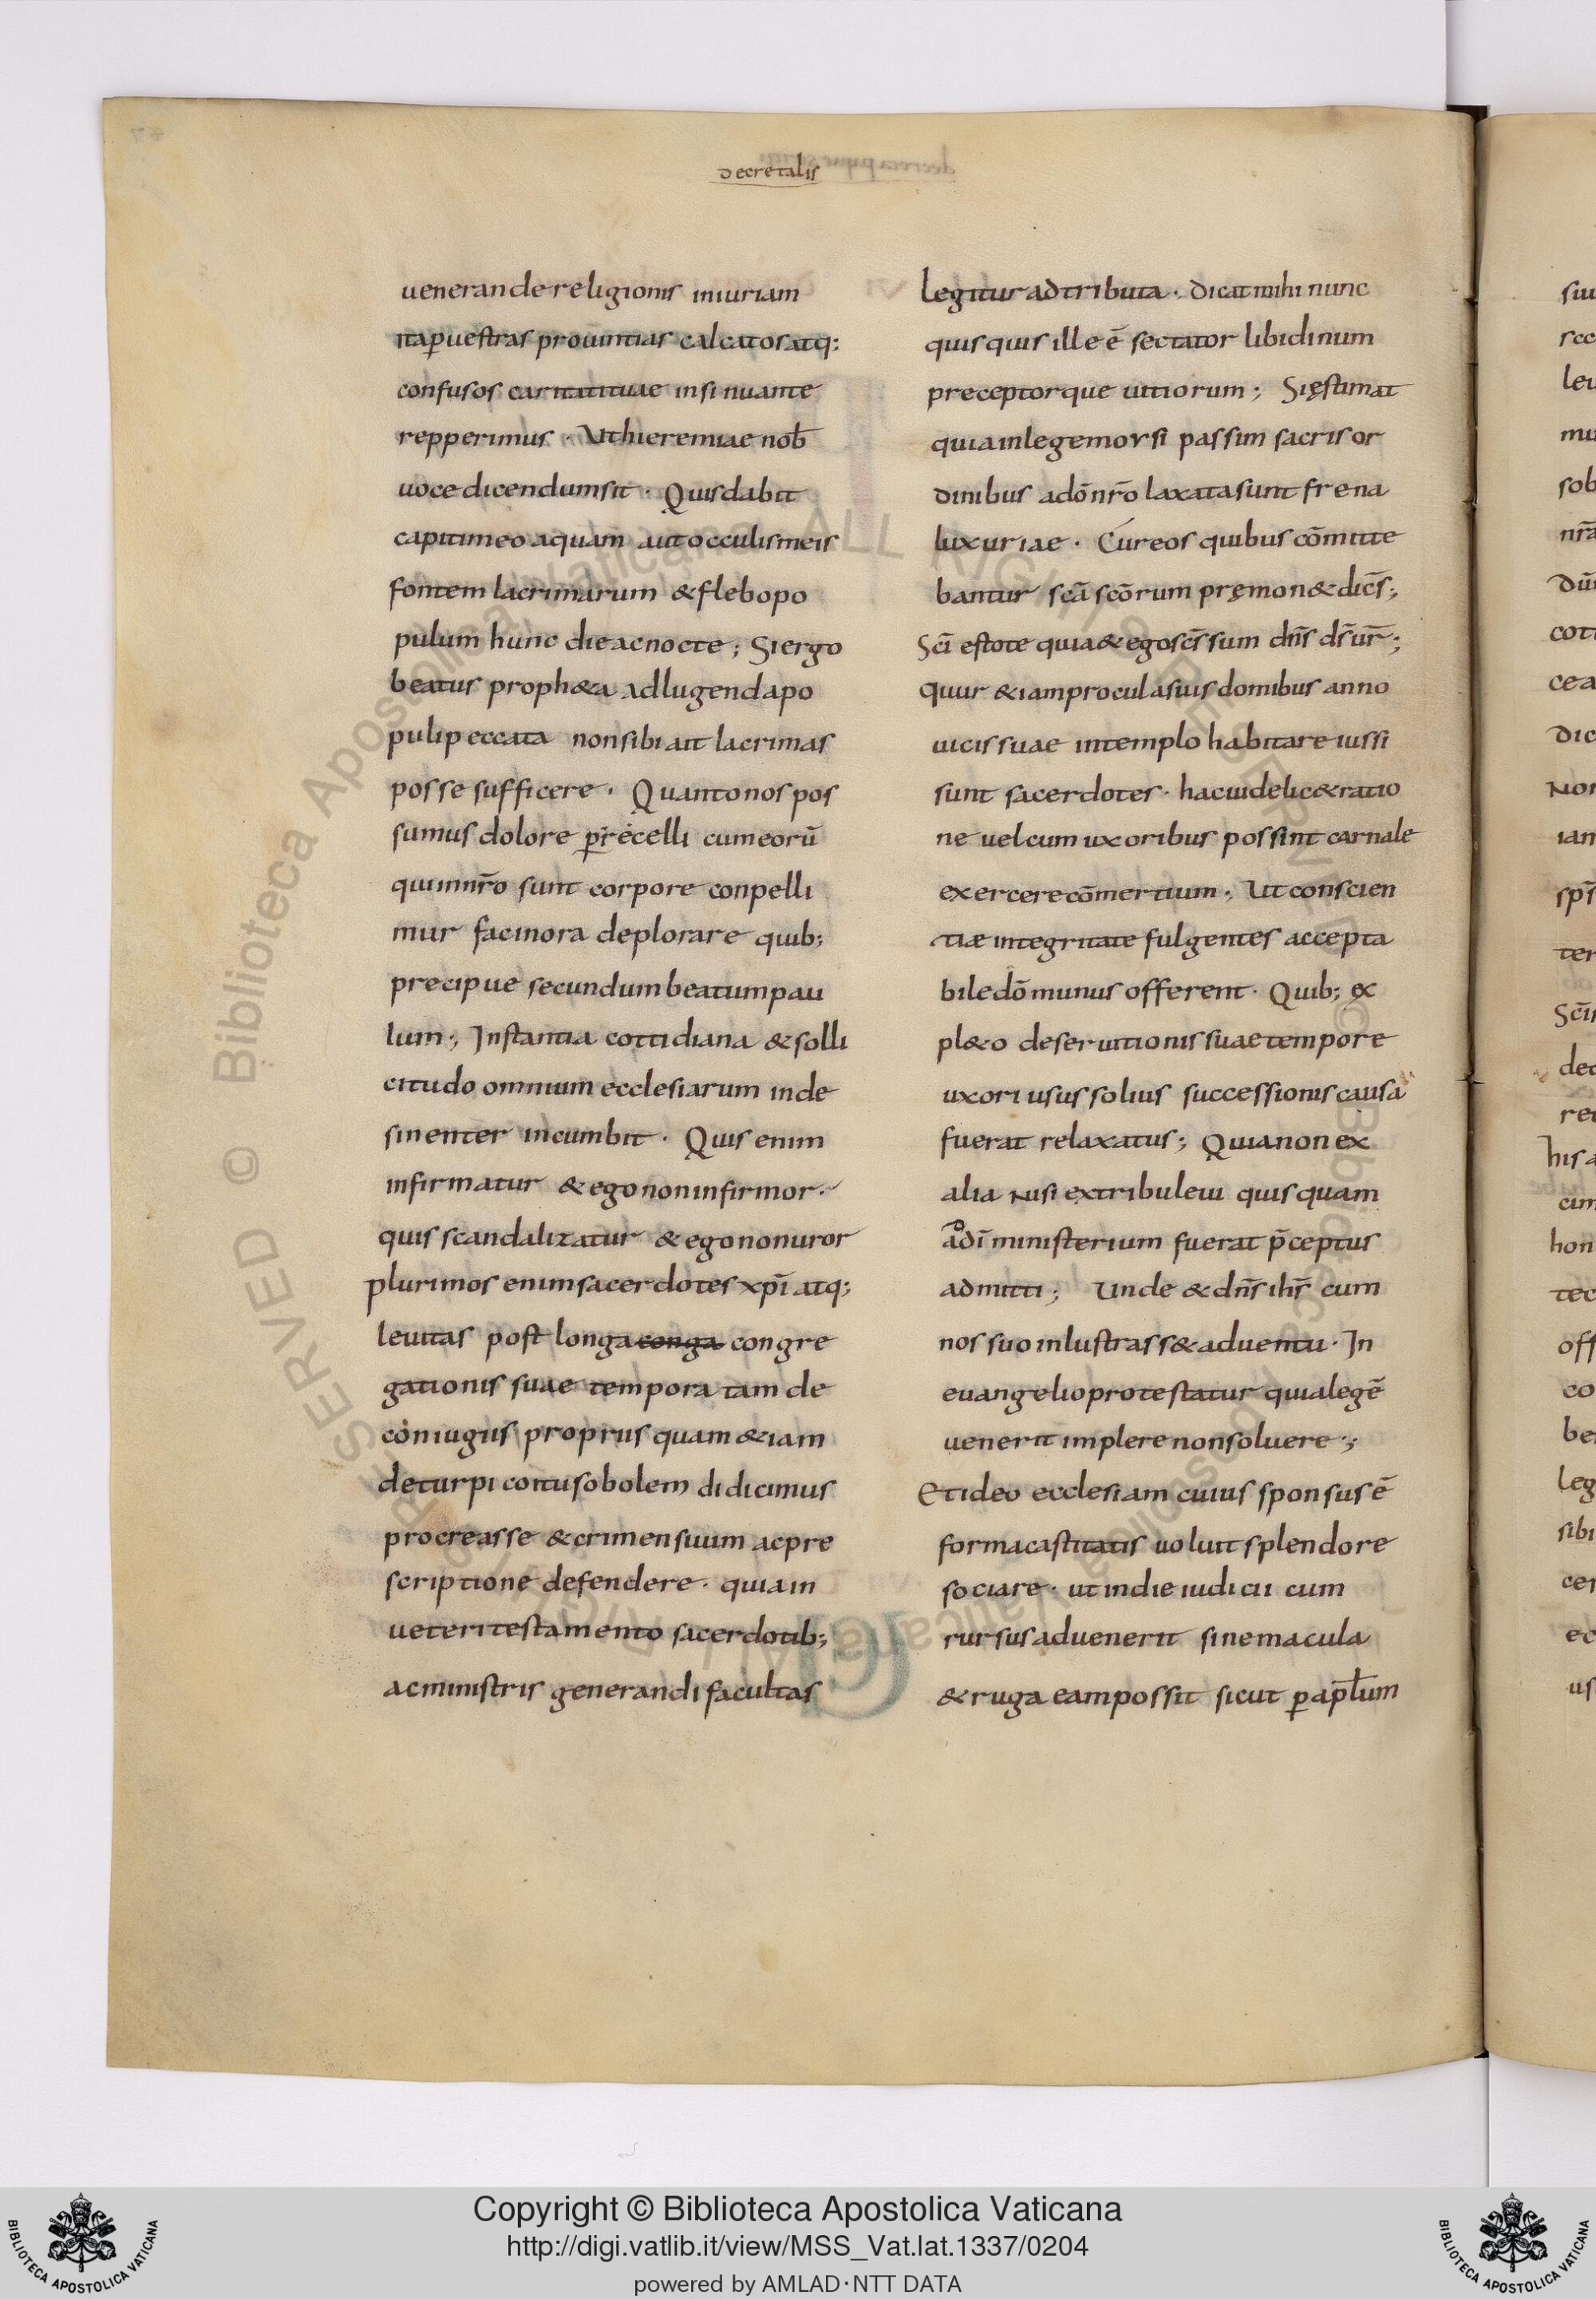 decretalis
uenerande religionis iniuriam
ita p̲ uestras prouintias calcatos atq:
confusos caritati tuae insinuante
repperimus · Ut hieremiae nob̅
uoce dicendum sit · Quis dabit
capiti meo aquam aut occulis meis
fontem lacrimarum & flebo po
pulum hunc die ac nocte ; Si ergo
beatus proph&a ad lugenda po
puli peccata non sibi ait lacrimas
posse sufficere · Quanto nos pos
sumus dolore
qui in nr̅o sunt corpore conpelli
mur facinora deplorare quib;
precipue secundum beatum pau
lum ; Instantia cottidiana & solli
citudo omnium ecclesiarum inde
sinenter incumbit · Quis enim
infirmatur & ego non infirmor ·
quis scandalizatur & ego non uror
plurimos enim sacerdotes xp̅i atq;
leuitas post longa conga congre
gationis suae tempora tam de
coniugiis propriis quam &iam
de turpi coitu sobolem didicimus
procreasse & crimen suum ac pre
scriptione defendere · quia in
ueteri testamento sacerdotib;
ac ministris generandi facultas
legitur adtributa · dicat mihi nunc
quisquis ille e̅ sectator libidinum
preceptorque uitiorum ; Si ęstimat
quia in lege morsi passim sacris or
dinibus a do̅ nr̅o laxata sunt frena
luxuriae · Cur eos quibus co̅mitte
bantur sc̅a sc̅orum pręmon& dic̅s ;
Sc̅i estote quia & ego sc̅s sum dn̅s ds̅ ur̅ ;
quur &iam procul a suis domibus anno
uicis suae in templo habitare iussi
sunt sacerdotes · hac uidelic& ratio
ne uel cum uxoribus possint carnale
exercere co̅mertium ; Ut conscien
tiæ integritate fulgentes accepta
bile do̅ munus offerent · Quib; ex
pl&o deseruitionis suae tempore
uxori usus solius successionis causa
fuerat relaxatus ; Quia non ex
alia nisi ex tribu leui quisquam
ad di̅ ministerium fuerat p̅ceptus
admitti ; Unde & dn̅s ih̅s cum
nos suo inlustrass& aduentu · In
euangelio protestatur quia lege̅
uenerit implere non soluere ;
Et ideo ecclesiam cuius sponsus e̅
forma castitatis uoluit splendore
sociare · ut in die iudicii cum
rursus aduenerit sine macula
& ruga eam possit sicut p̲ ap̅lum
Copyright © Biblioteca Apostolica Vaticana
http://digi.vatlib.it/view/MSS_Vat.lat.1337/0204
powered by AMLAD·NTT DATA
BIBLIOTECA APOSTOLICA VATICANA
BIBLIOTECA APOSTOLICA VATICANA